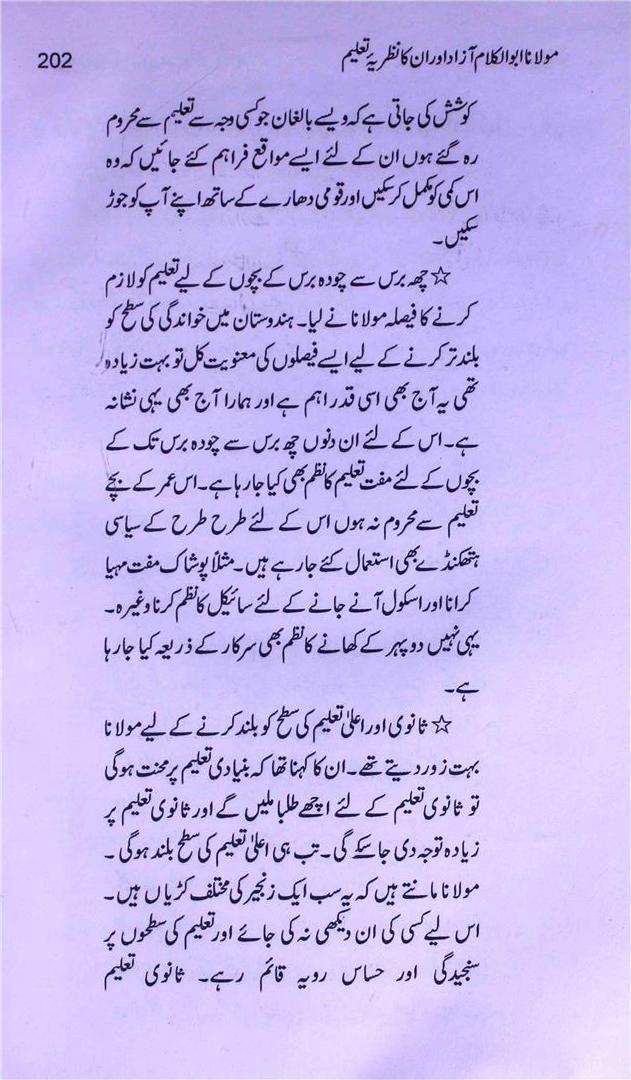 مولانا ابوالکلام آزاد اور ان کا نظریۂ تعلیم
202
کوشش کی جاتی ہے کہ ویسے بالغان جو کسی وجہ سے تعلیم سے محروم
رہ گئے ہوں ان کے لئے ایسے مواقع فراہم کئے جائیں کہ وہ
اس کمی کو مکمل کر سکیں اور قومی دھارے کے ساتھ اپنے آپ کو جوڑ
سکیں۔
☆ چھ برس سے چودہ برس کے بچوں کے لیے تعلیم کو لازم
کرنے کا فیصلہ مولانا نے لیا۔ ہندوستان میں خواندگی کی سطح کو
بلند تر کرنے کے لیے ایسے فیصلوں کی معنویت کل تو بہت زیادہ
تھی یہ آج بھی اسی قدر اہم ہے اور ہمارا آج بھی یہی نشانہ
ہے۔ اس کے لئے ان دنوں چھ برس سے چودہ برس تک کے
بچوں کے لئے مفت تعلیم کا نظم بھی کیا جا رہا ہے۔ اس عمر کے بچے
تعلیم سے محروم نہ ہوں اس کے لئے طرح طرح کے سیاسی
ہتھکنڈے بھی استعمال کئے جا رہے ہیں۔ مثلاً پوشاک مفت مہیا
کرانا اور اسکول آنے جانے کے لئے سائیکل کا نظم کرنا وغیرہ۔
یہی نہیں دوپہر کے کھانے کا نظم بھی سرکار کے ذریعہ کیا جا رہا
ہے۔
☆ ثانوی اور اعلیٰ تعلیم کی سطح کو بلند کرنے کے لیے مولانا
بہت زور دیتے تھے۔ ان کا کہنا تھا کہ بنیادی تعلیم پر محنت ہوگی
تو ثانوی تعلیم کے لئے اچھے طلبا ملیں گے اور ثانوی تعلیم پر
زیادہ توجہ دی جا سکے گی۔ تب ہی اعلیٰ تعلیم کی سطح بلند ہوگی۔
مولانا مانتے ہیں کہ یہ سب ایک زنجیر کی مختلف کڑیاں ہیں۔
اس لیے کسی کی ان دیکھی نہ کی جائے اور تعلیم کی سطحوں پر
سنجیدگی اور حساس رویہ قائم رہے۔ ثانوی تعلیم